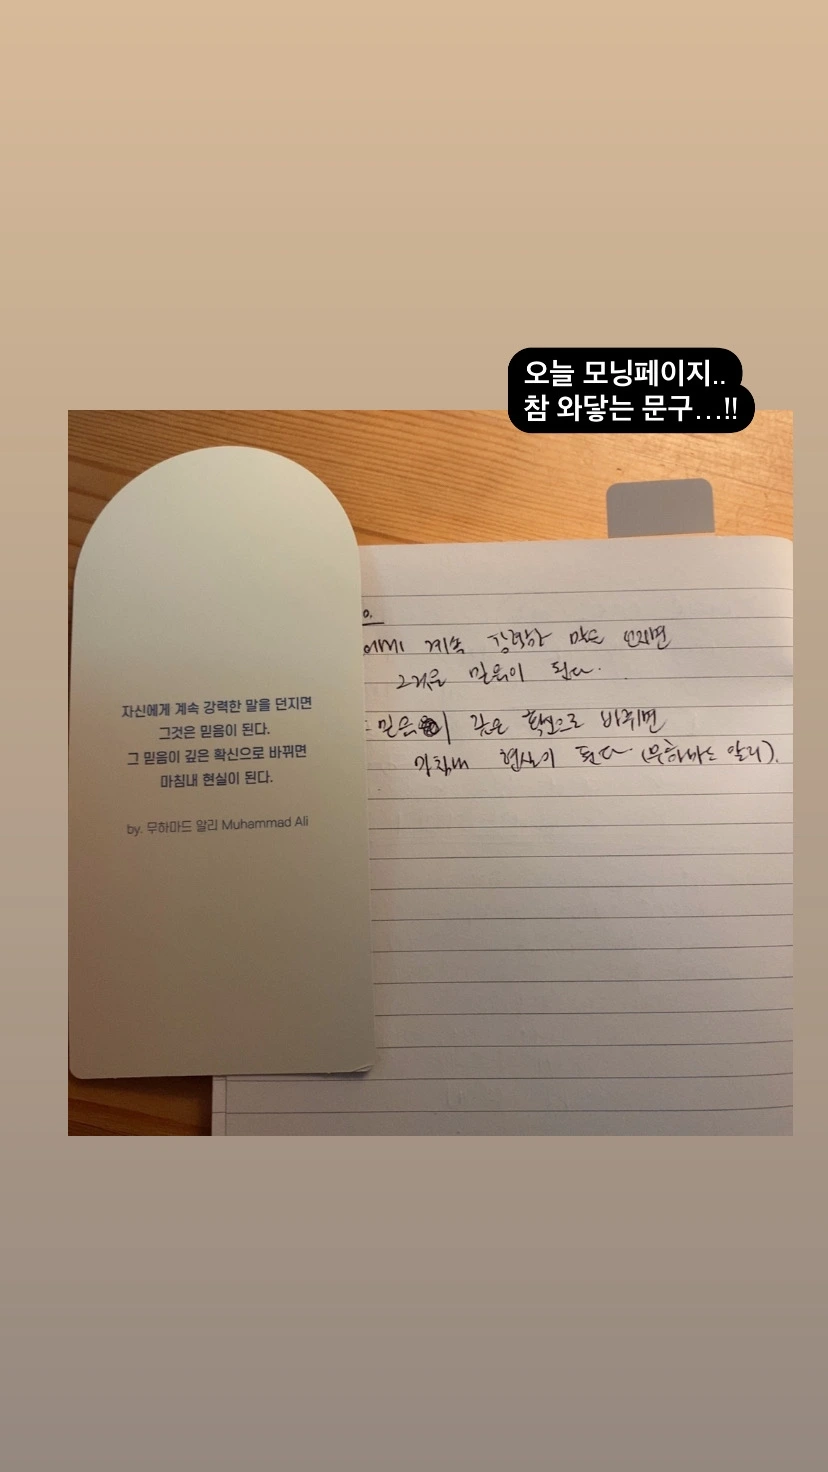 오늘 모닝페이지..
참 와닿는 문구...!!
자신에게 계속 강력한 말을 던지면
그것은 믿음이 된다.
그 믿음이 깊은 확신으로 바뀌면
마침내 현실이 된다.
by. 무하마드 알리 Muhammad Ali
0.
에게 계속 강력한 말을 던지면
그것은 믿음이 된다.
믿음이 깊은 확신으로 바뀌면
마침내 현실이 된다 (무하마드 알리).